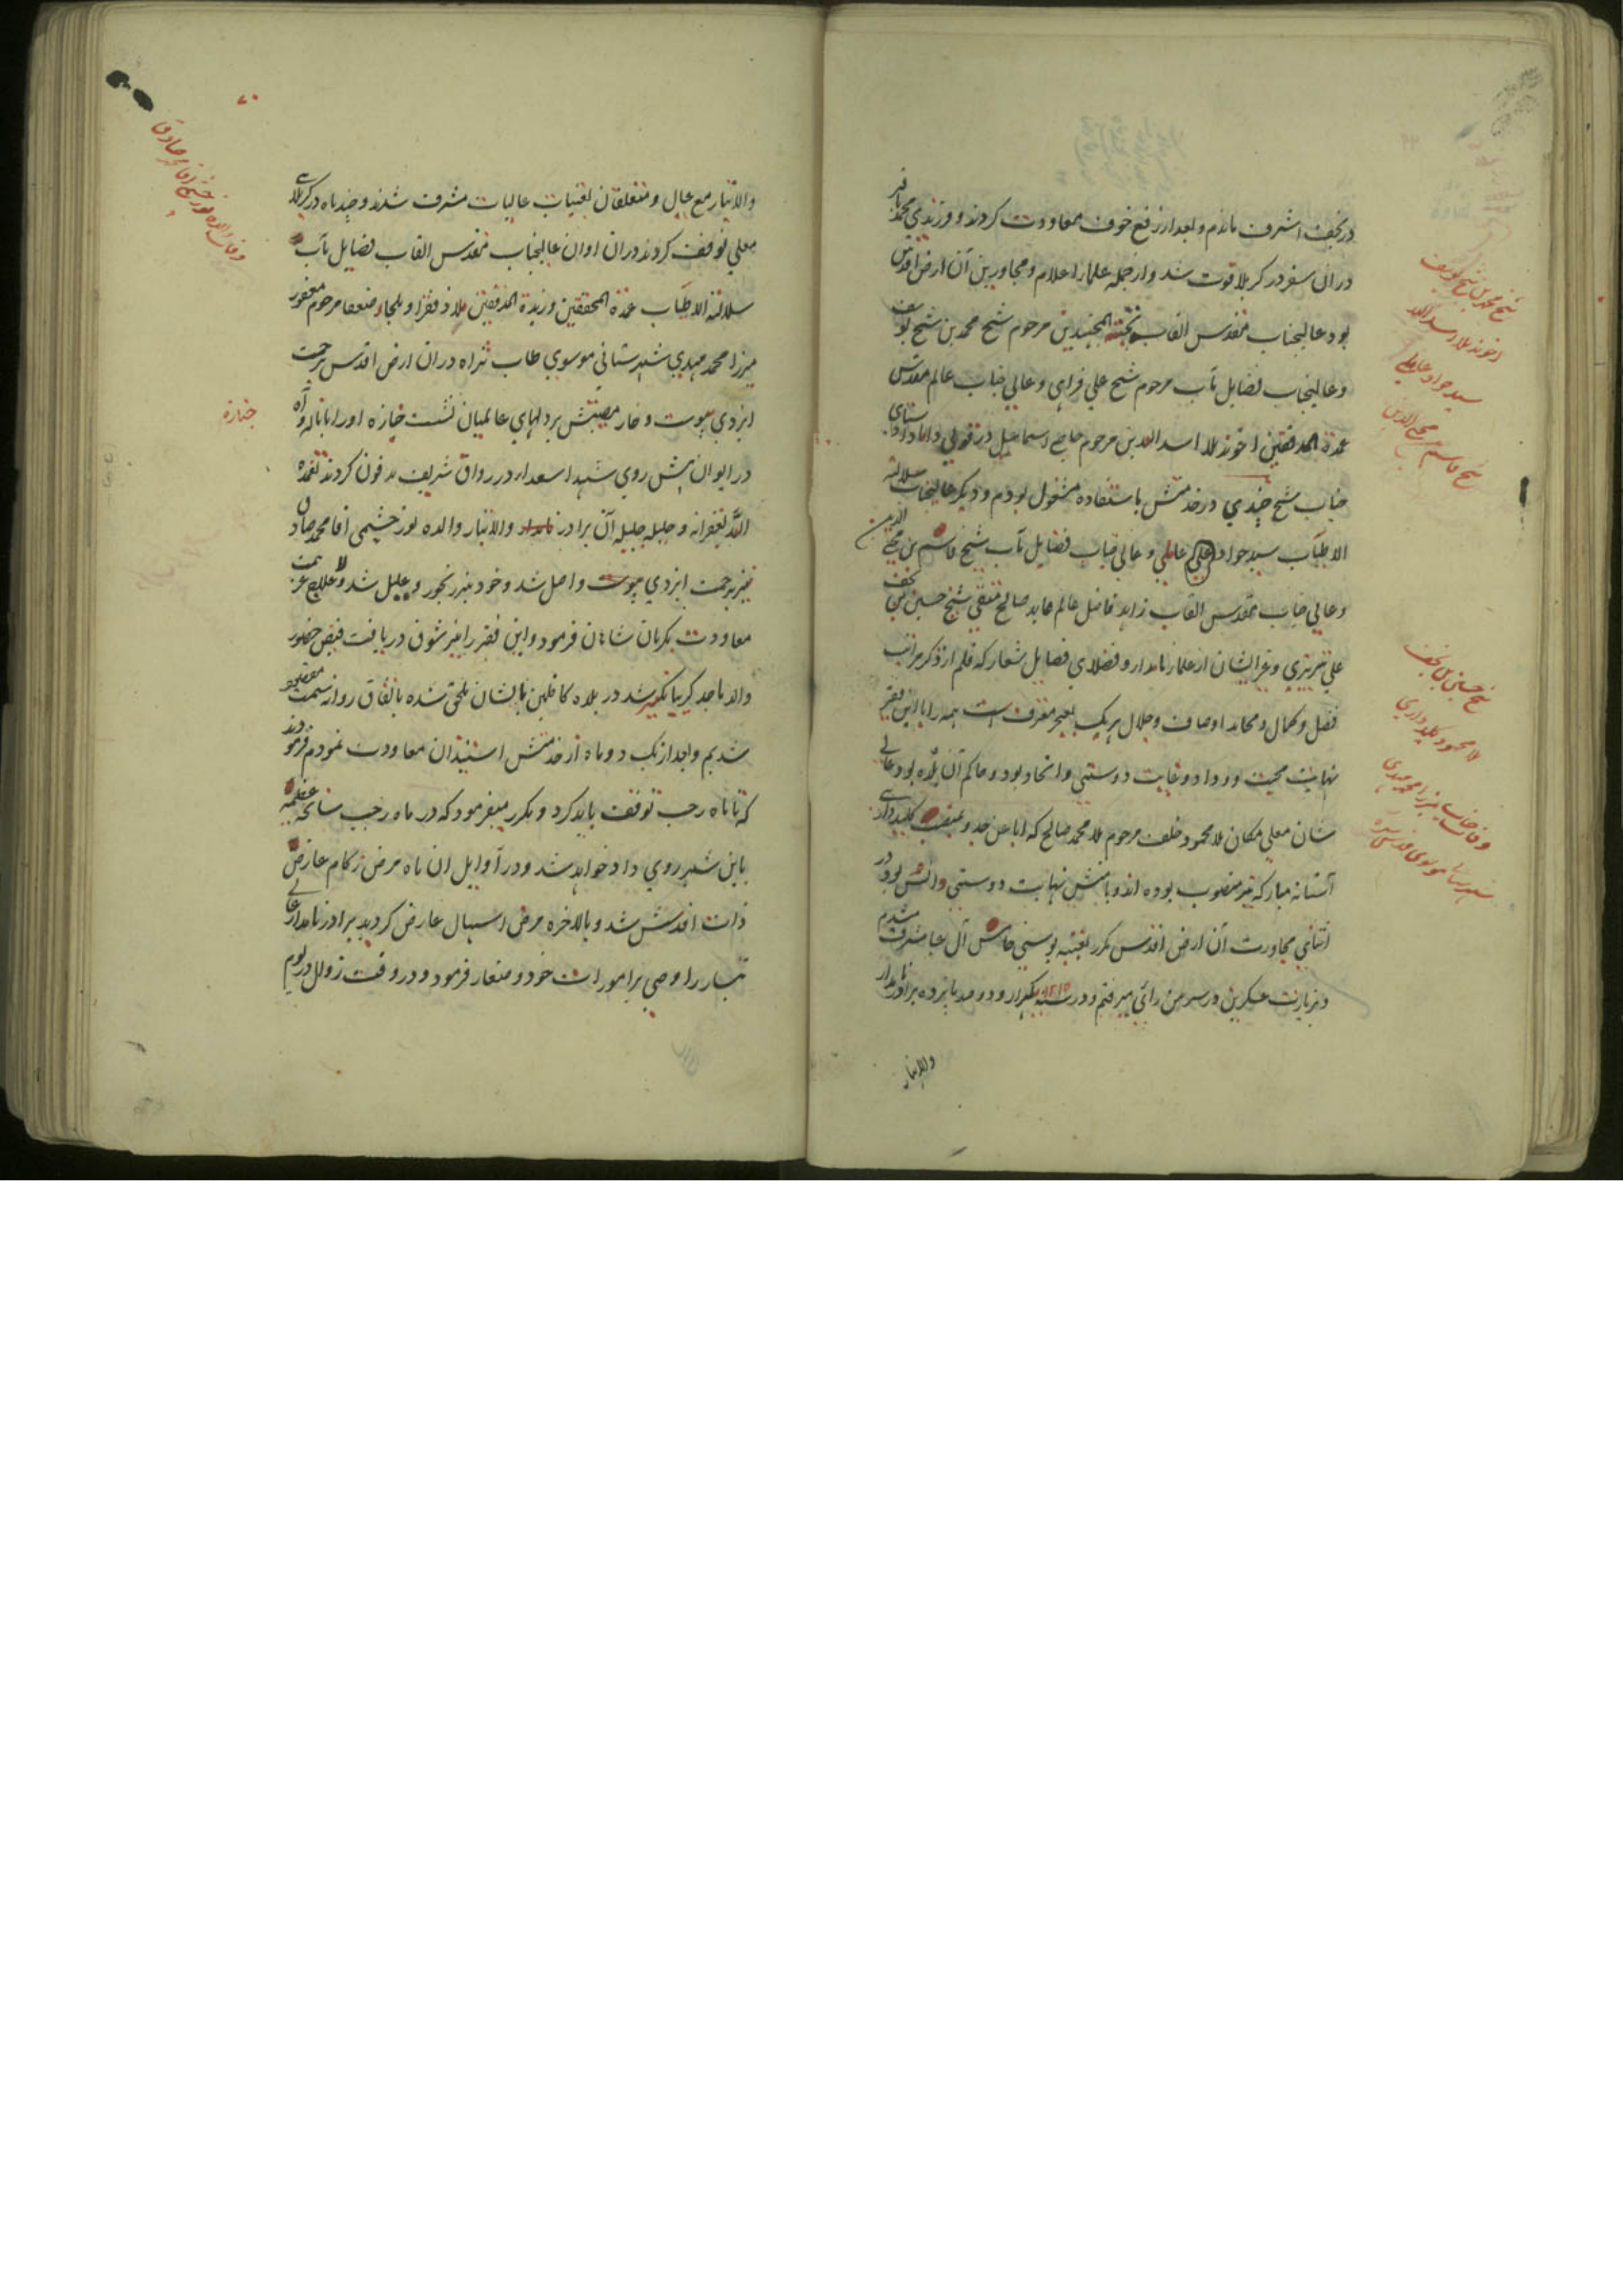 در نجف اشرف ماندم و بعد از رفع خوف معاودت کردند و فرزندی محمد باقر
در ان سفر در کربلا فوت شد و از جمله علماء اعلام و مجاورین آن ارض اقدس
بود عالیجناب مقدس القاب نتیجة المجتهدین مرحوم شیخ محمد بن شیخ یوسف
و عالیجناب فضایل مآب مرحوم شیخ علی فراهی و عالی جناب عالم مقدس
عمدة المدققین اخوند ملا اسد الله بن مرحوم حاجی اسماعیل دزفولی و اینا
جناب شیخ چندی در خدمتش باستفاده مشغول بودم و دیگر عالیجناب سلالة
الاطیاب سید جواد عاملی و عالی جناب فضایل مآب شیخ قاسم بن محیی الدین
و عالی جناب مقدس القاب زاهد فاضل عالم عابد صالح متقی شیخ حسین بن نجف
علی تبریزی و غیر ایشان از علماء نامدار و فضلای فضایل شعار که قلم از ذکر مراتب
فضل و کمال و محامد اوصاف و جلال هریک بعجز معترف است همه را با این فقیر
نهایت محبت و وداد و غایت دوستی و اتحاد بود و حاکم آن بلاه بود عالی
شان معلی مکان ملا محمود خلف مرحوم ملا محمد صالح که ابا عن جد و بمنصب کلیدداری
آستانه مبارکه نیز منصوب بوده اند و با منش نهایت دوستی و انس بود در
اثنای مجاورت آن ارض اقدس مکرر بعتبه بوسی خامس آل عبا مشرف میشدم
و بزیارت عسکریین در سر من رای میرفتم و در سنه ۱۲۱۵ یکهزار و دو صد پانزده برادر نامدار
والاتبار
شیخ محمد بن شیخ یوسف
اخوند ملا اسد الله
سید جواد عاملی
شیخ قاسم محیی الدین
شیخ حسین بن نجف
ملا محمود کلیدداری
وفات جناب میرزا محمد مهدی
شهرستانی موسوی قدس سره
۷۰
والاتبار مع عیال و متعلقان بعتبات عالیات مشرف شدند و چند ماه در کربلای
معلی توقف کردند در ان اوان عالیجناب مقدس القاب فضایل مآب
سلالة الاطیاب عمدة المحققین و زبدة المدققین ملاذ فقرا و ملجاء ضعفا مرحوم مغفور
میرزا محمد مهدی شهرستانی موسوی طاب ثراه در ان ارض اقدس برحمت
ایزدی پیوست و خار مصیبتش بر دلهای عالمیان نشست جنازه او را با ناله و آه
در ایوان پیش روی شهداء سعداء در رواق شریف مدفون کردند تغمده
الله بغفرانه و جلیله جلیله آن برادر نامدار والاتبار والده نور چشمی اقا محمد صادق
نیز برحمت ایزدی پیوست و اصل شد و خود نیز رنجور و علیل شد و لا علاج عزیمت
معاودت بکرمان شاهان فرمود و این فقیر را نیز شوق دریافت فیض حضور
والد ماجد گریبانگیر شد در بلاه کاظمین بایشان ملحق شده باتفاق روانه سمت مقصود
شدیم و بعد از یک دو ماه از خدمتش استیذان معاودت نمودم فرمودند
که تا ماه رجب توقف باید کرد و مکرر میفرمود که در ماه رجب سانحه عظیمه
باین شهر روی داد خواهد شد و در اوایل ان ماه مرض زکام عارض
ذات اقدسش شد و بالاخره مرض اسهال عارض گردید برادر نامدار عالی
تبار را وصی بر امورات خود و صغار فرمود و در وقت زوال در یوم
وفات والده نور چشمی اقا محمد صادق
جنازه